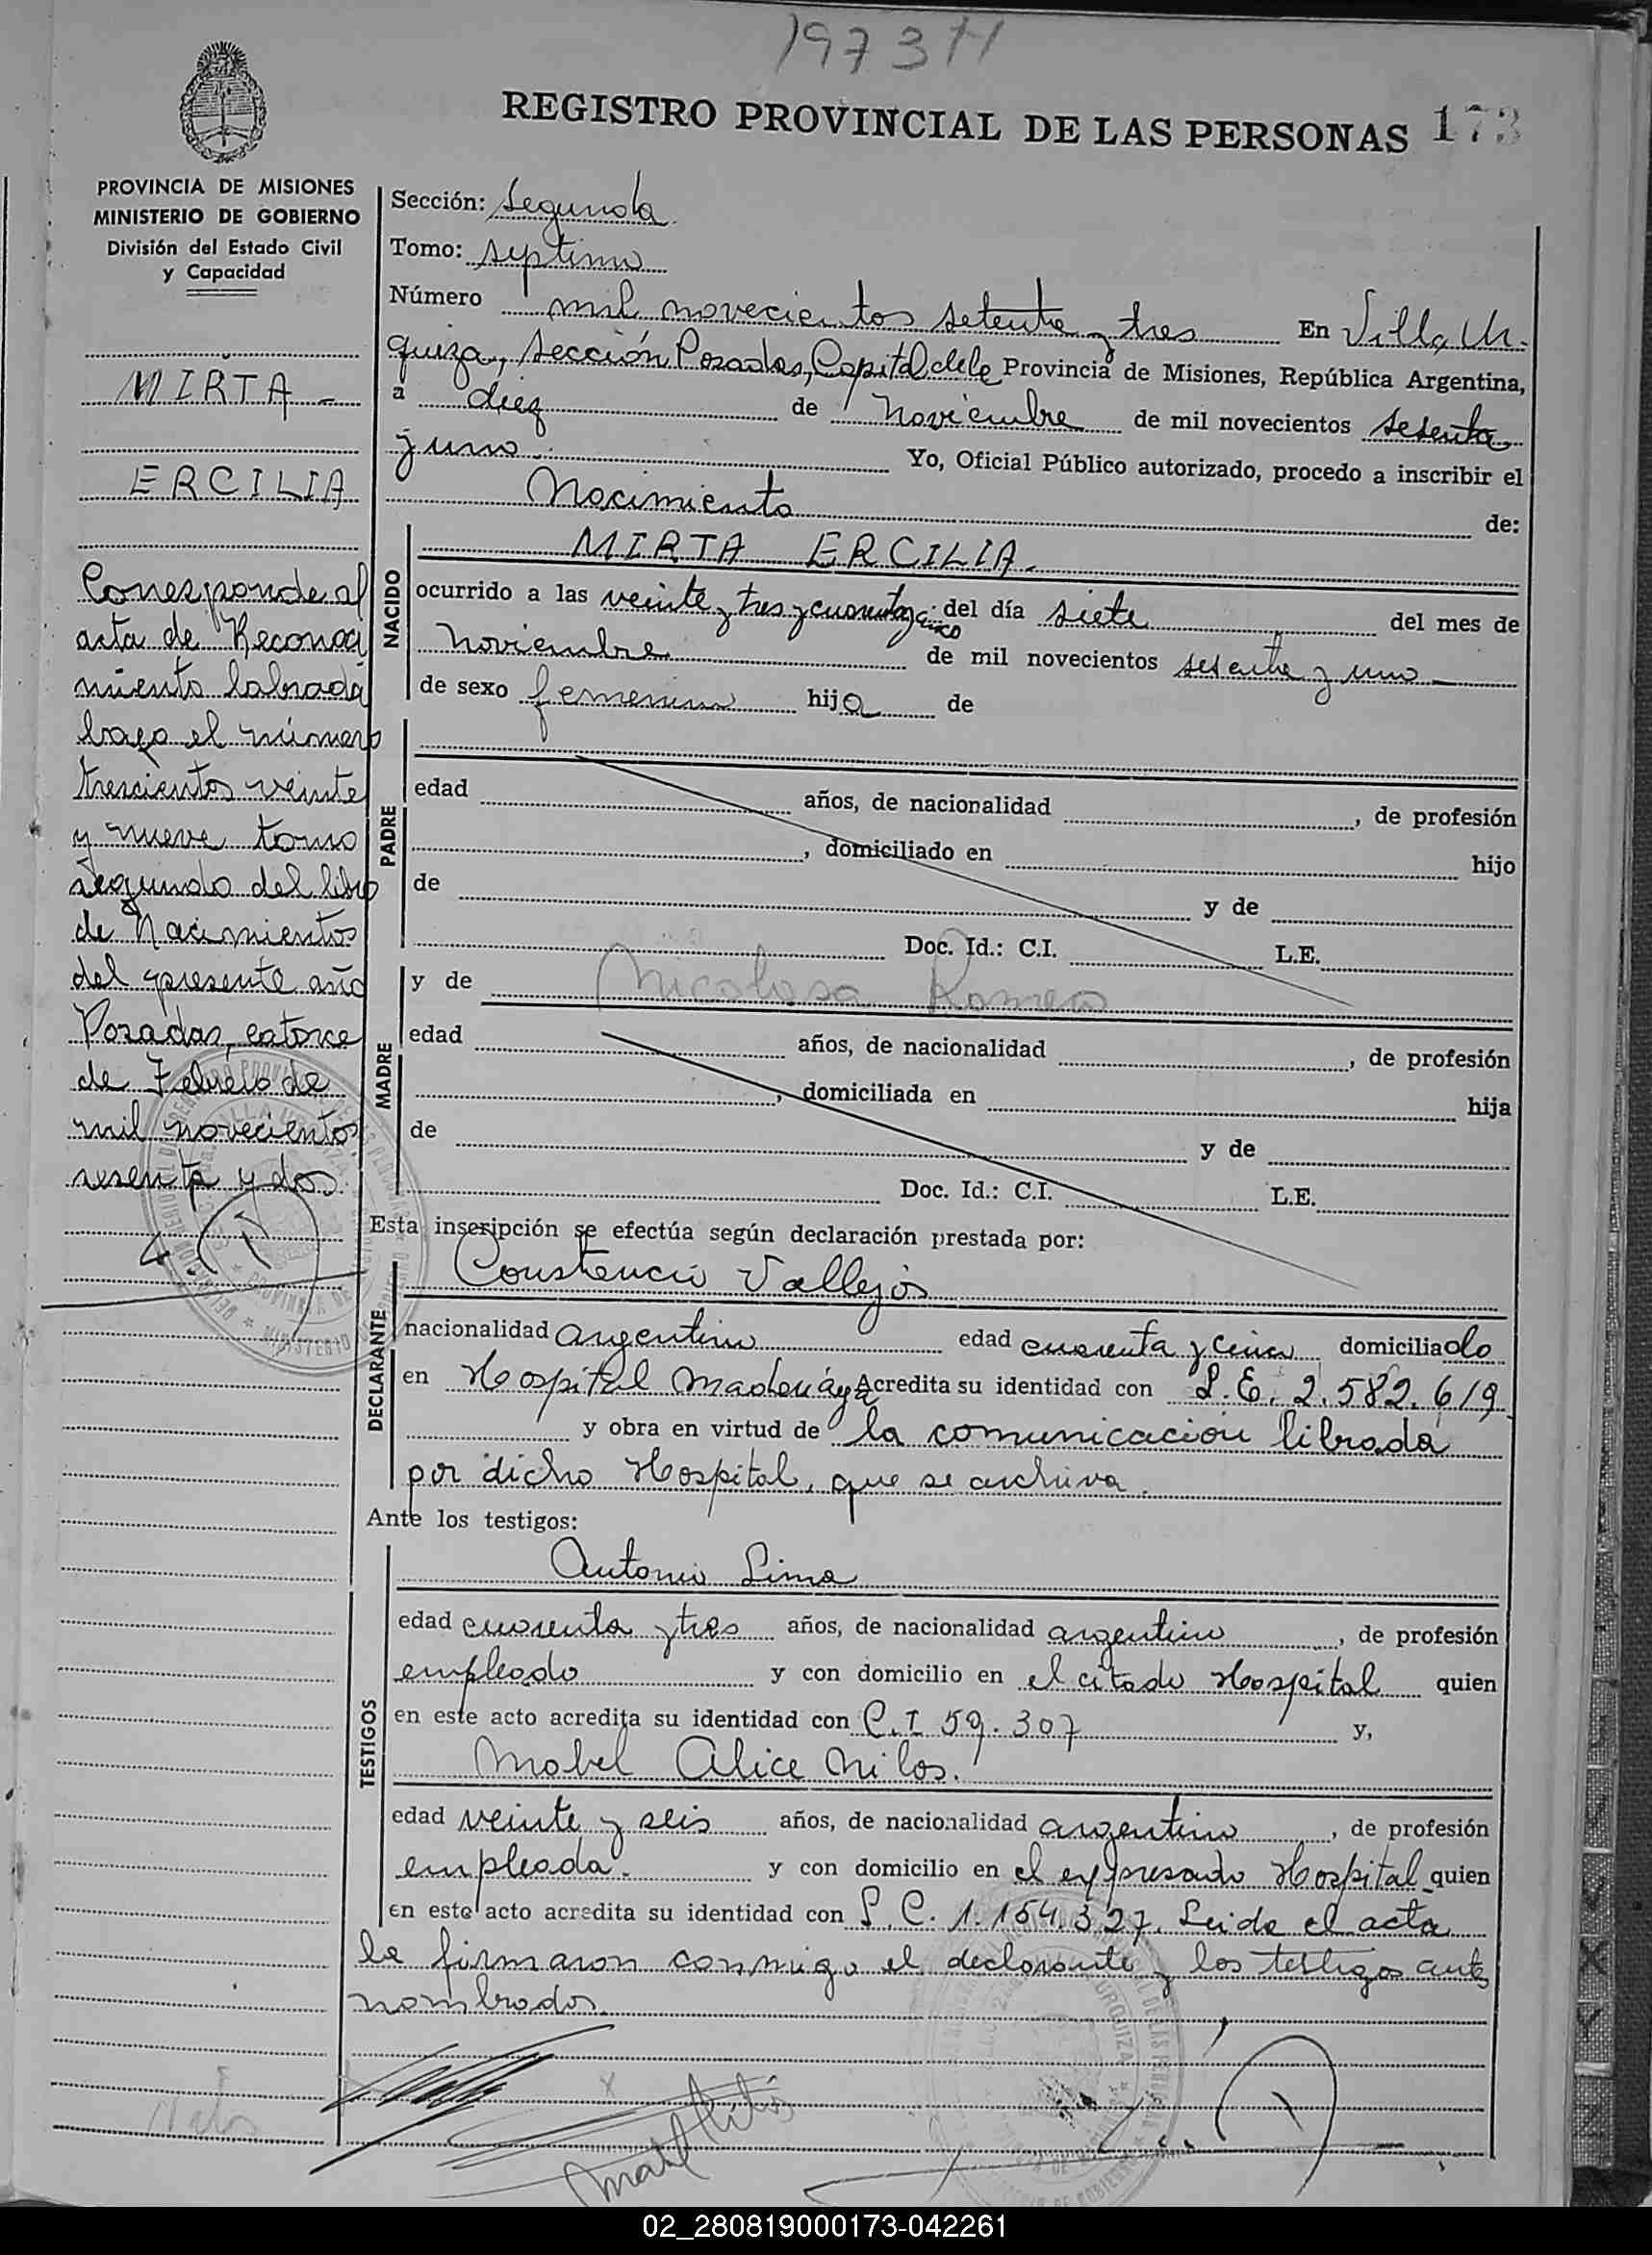 1973 H
REGISTRO PROVINCIAL DE LAS PERSONAS 173
PROVINCIA DE MISIONES
MINISTERIO DE GOBIERNO
División del Estado Civil
y Capacidad
MIRTA -
ERCILIA
Corresponde al
acta de Reconoci
miento labrada
bajo el número
trescientos veinte
y nueve tomo
segundo del libro
de Nacimientos
del presente año
Posadas, catorce
de Febrero de
mil novecientos
sesenta y dos.
Sección: Segunda
Tomo: septimo
Número mil novecientos setenta y tres En Villa Ur-
quiza, Sección Posadas, Capital de la Provincia de Misiones, República Argentina,
a diez de Noviembre de mil novecientos sesenta
y uno. Yo, Oficial Público autorizado, procedo a inscribir el
Nacimiento de:
NACIDO
MIRTA ERCILIA.
ocurrido a las veinte y tres y cuarenta y cinco del día siete del mes de
noviembre de mil novecientos sesenta y uno
de sexo femenino hija de
PADRE
edad años, de nacionalidad , de profesión
, domiciliado en hijo
de y de
Doc. Id.: C.I. L.E.
MADRE
y de Nicolasa Romero
edad años, de nacionalidad , de profesión
, domiciliada en hija
de y de
Doc. Id.: C.I. L.E.
Esta inscripción se efectúa según declaración prestada por:
DECLARANTE
Constancio Vallejos
nacionalidad argentino edad cuarenta y cinco domiciliado
en Hospital Madariaga Acredita su identidad con L.E. 2.582.619
y obra en virtud de la comunicación librada
por dicho Hospital, que se archiva.
Ante los testigos:
TESTIGOS
Antonio Lima
edad cuarenta y tres años, de nacionalidad argentino , de profesión
empleado y con domicilio en el citado Hospital quien
en este acto acredita su identidad con C.I 59.307 y,
Mabel Alice Milos.
edad veinte y seis años, de nacionalidad argentino , de profesión
empleada. y con domicilio en el expresado Hospital quien
en este acto acredita su identidad con L.C. 1.154.327. Leida el acta
la firmaron conmigo el declarante y los testigos antes
nombrados.
02_280819000173-042261